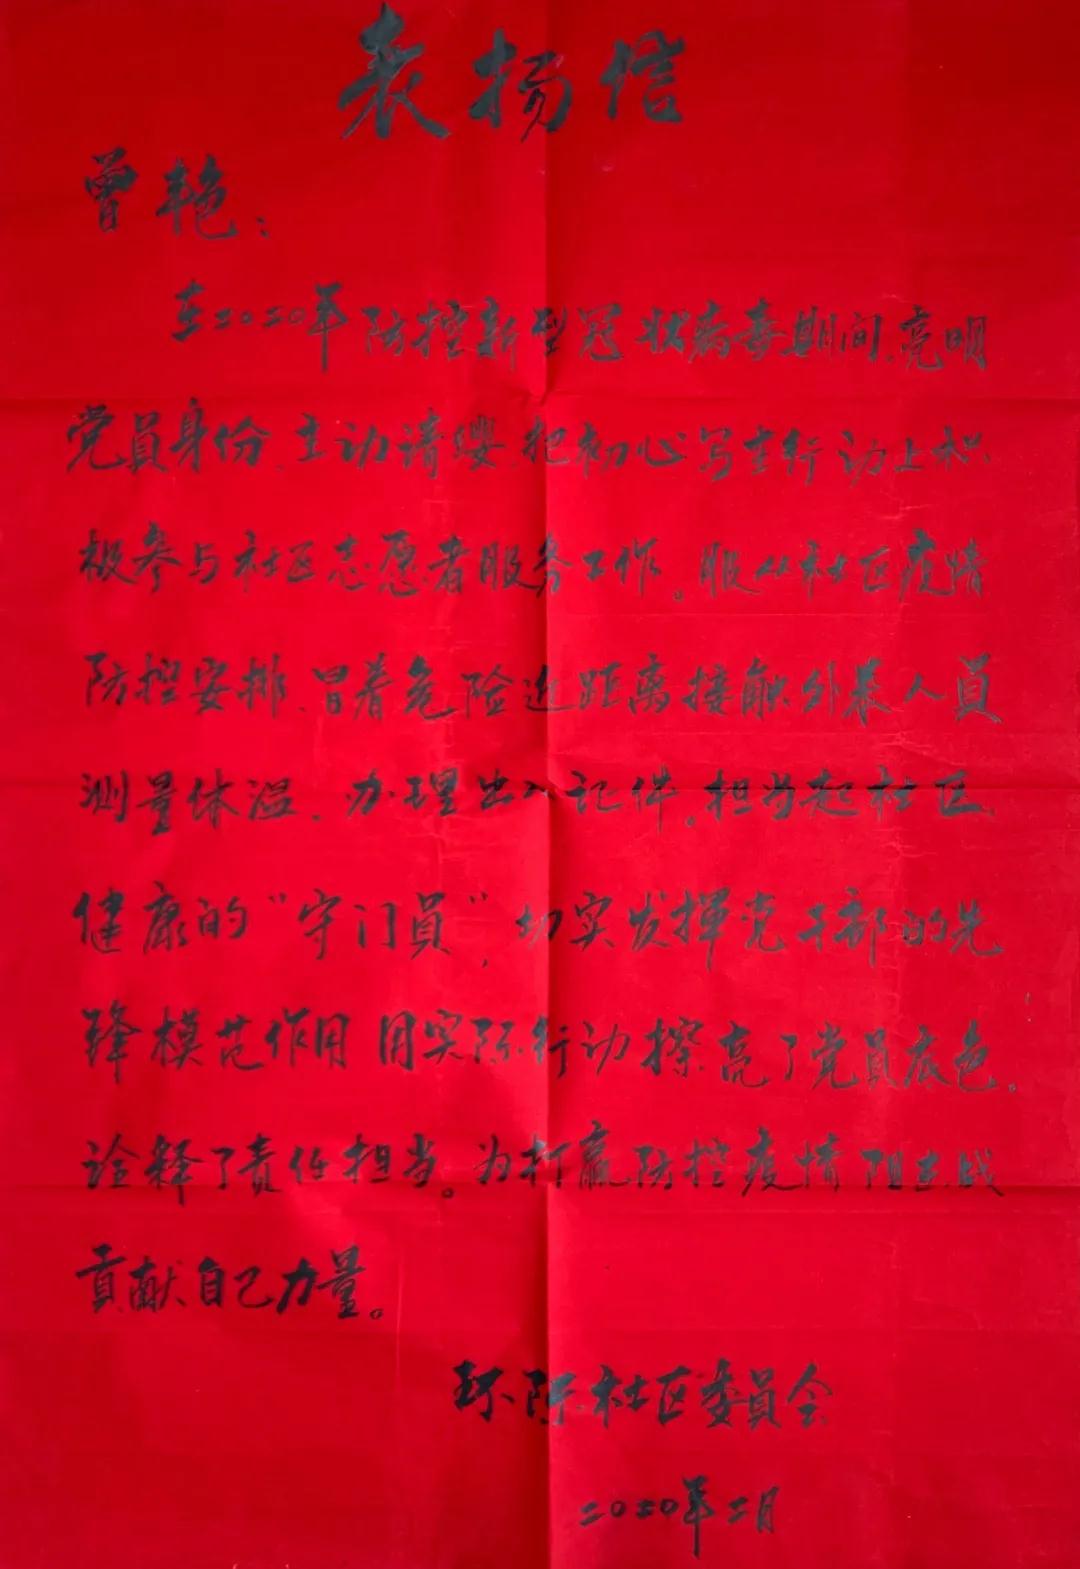 表扬信
曾艳：
在二〇二〇年防控新型冠状病毒期间、亮明
党员身份、主动请缨、把初心写在行动上积
极参与社区志愿者服务工作。服从社区疫情
防控安排、冒着危险近距离接触外来人员
测量体温、办理出入证件。担当起社区
健康的“守门员”，切实发挥党干部的先
锋模范作用 用实际行动擦亮了党员底色。
诠释了责任担当。为打赢防控疫情阻击战
贡献自己力量。
环际社区委员会
二〇二〇年二月